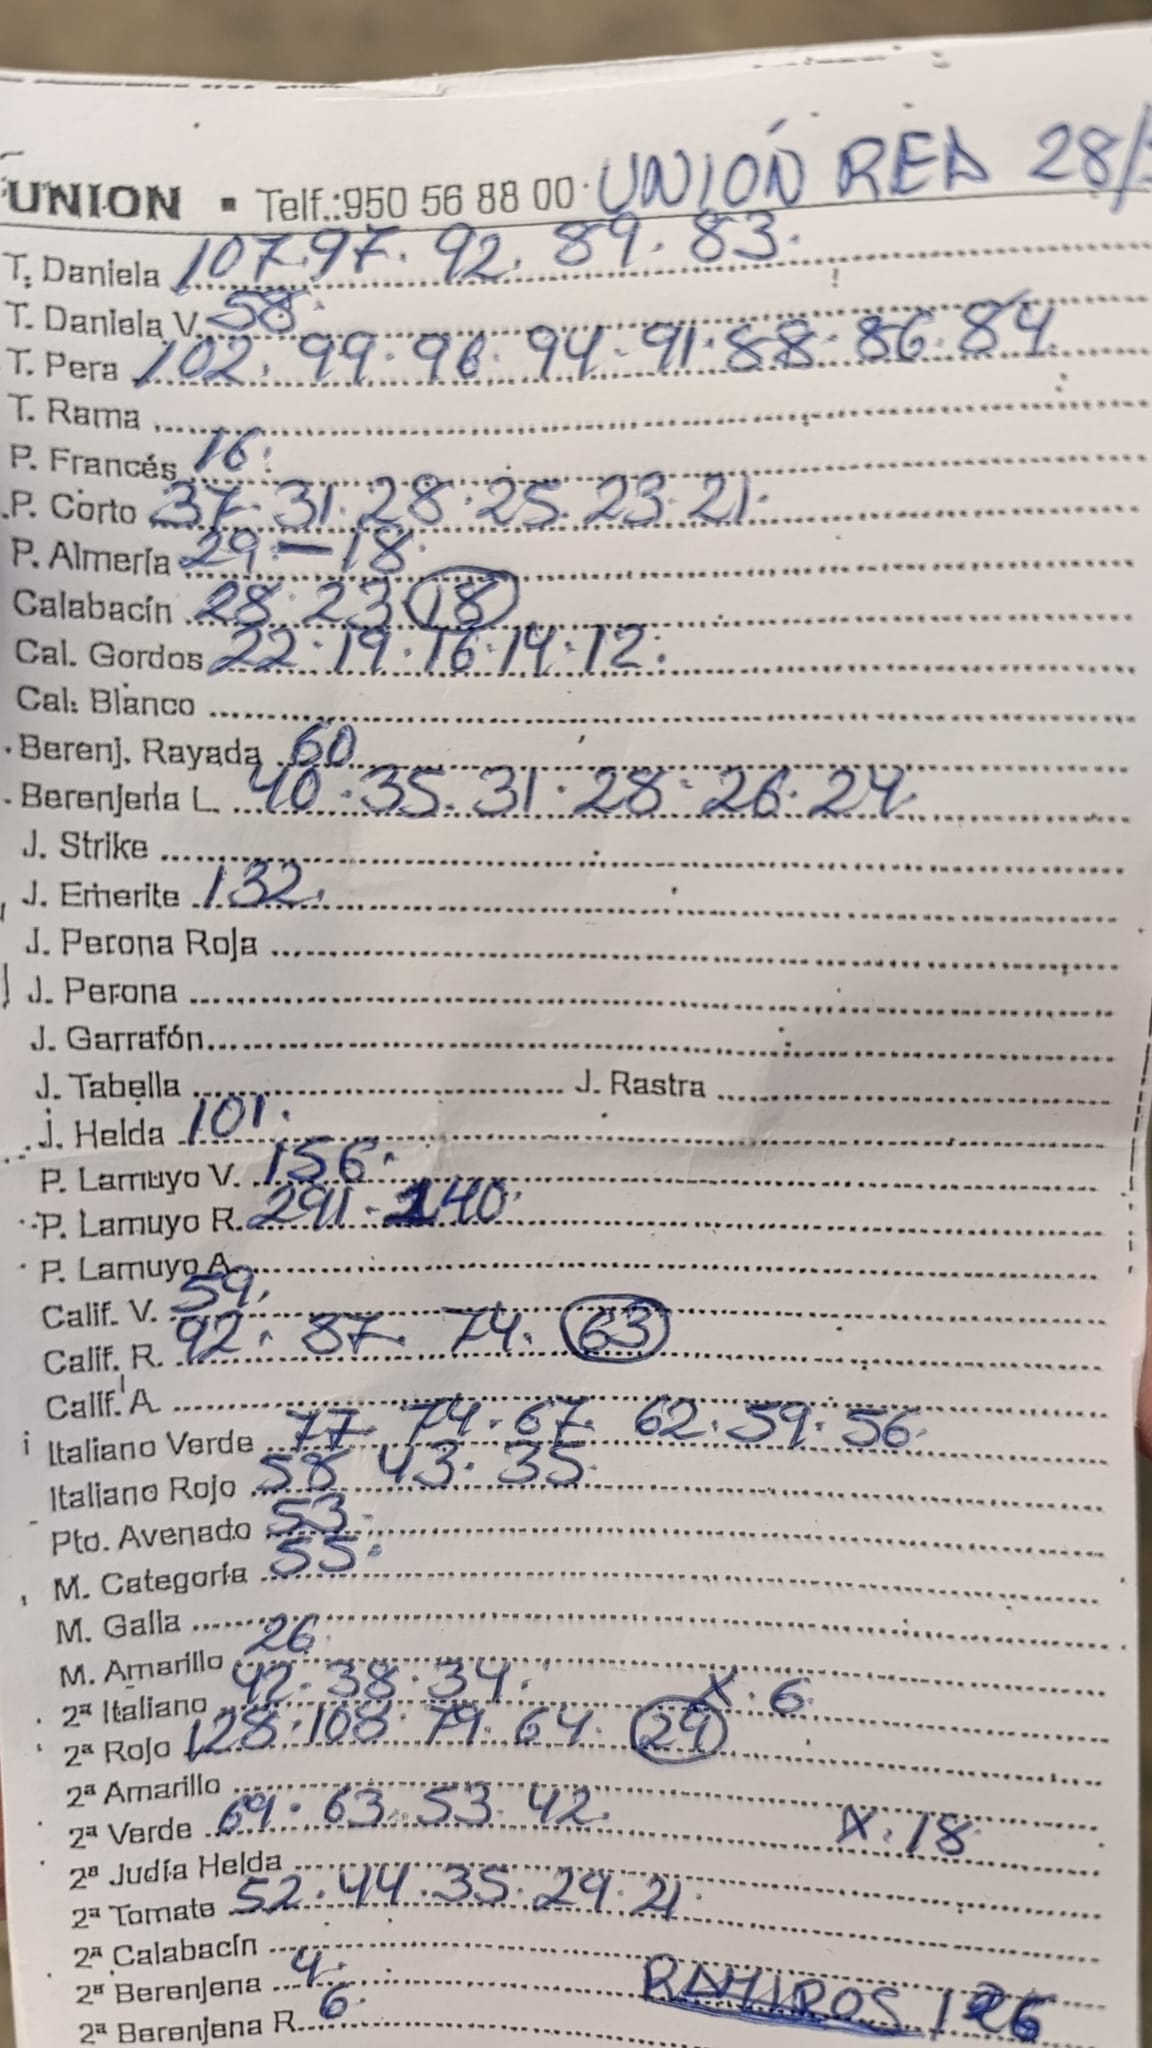 UNION ▪ Telf.:950 56 88 00 UNIÓN RED 28/
T. Daniela 107.97. 92. 89. 83.
T. Daniela V. 58.
T. Pera 102. 99. 96. 94. 91. 88. 86. 84.
T. Rama
P. Francés 16.
P. Corto 37. 31. 28. 25. 23. 21.
P. Almería 29 - 18.
Calabacín 28. 23 18
Cal. Gordos 22. 19. 16. 14. 12.
Cal. Blanco
Berenj. Rayada 60
Berenjena L. 40. 35. 31. 28. 26. 24.
J. Strike
J. Emerite 132.
J. Perona Roja
J. Perona
J. Garrafón
J. Tabella J. Rastra
J. Helda 101.
P. Lamuyo V. 156.
P. Lamuyo R. 291 - 240.
P. Lamuyo A.
Calif. V. 59.
Calif. R. 92. 87. 74. 63
Calif. A
Italiano Verde 77. 74. 67. 62. 59. 56.
Italiano Rojo 58 43. 35.
Pto. Avenado 53.
M. Categoría 55.
M. Galla
M. Amarillo 26.
2ª Italiano 42. 38. 34. X. 6.
2ª Rojo 128. 108. 79. 64. 29
2ª Amarillo
2ª Verde 69. 63. 53. 42. X. 18
2ª Judía Helda
2ª Tomate 52. 44. 35. 29. 21.
2ª Calabacín
2ª Berenjena 4.
2ª Berenjena R. 6.
RAMIROS 126